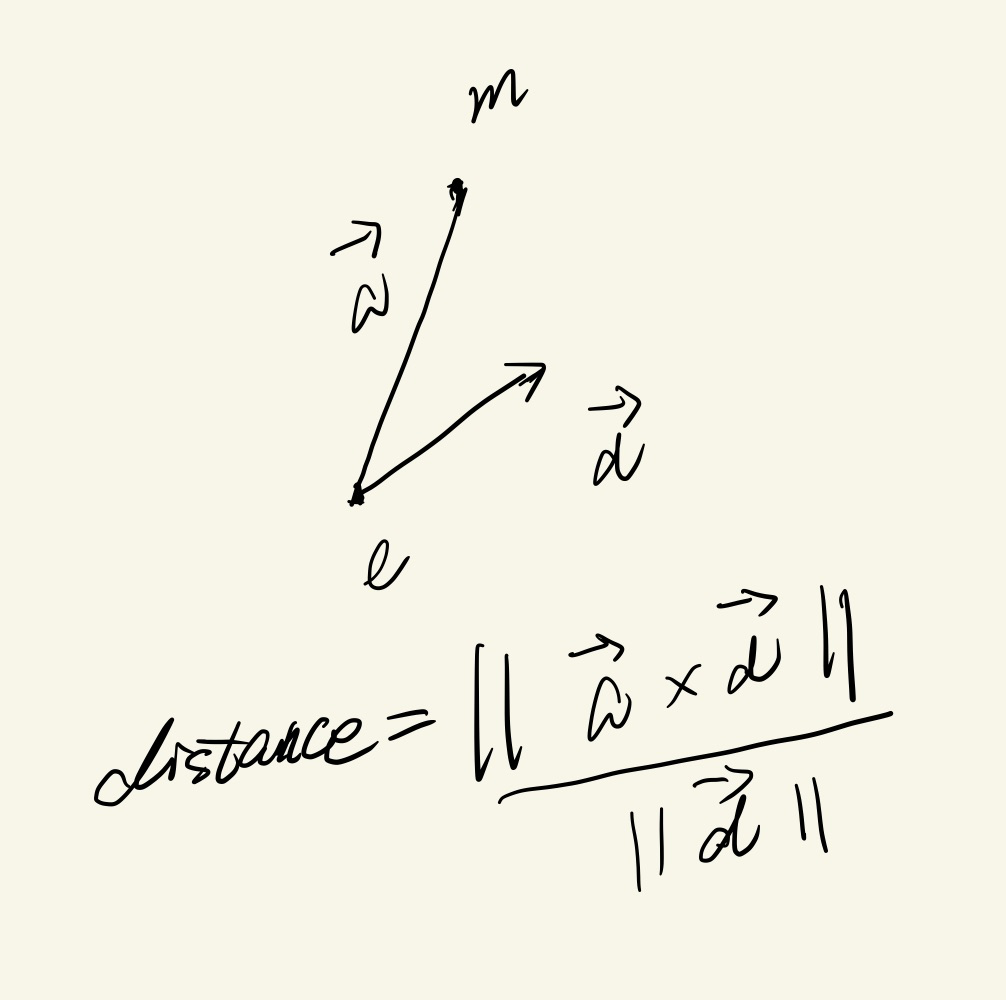 m
→a
→d
e
distance = || →a × →d || / || →d ||